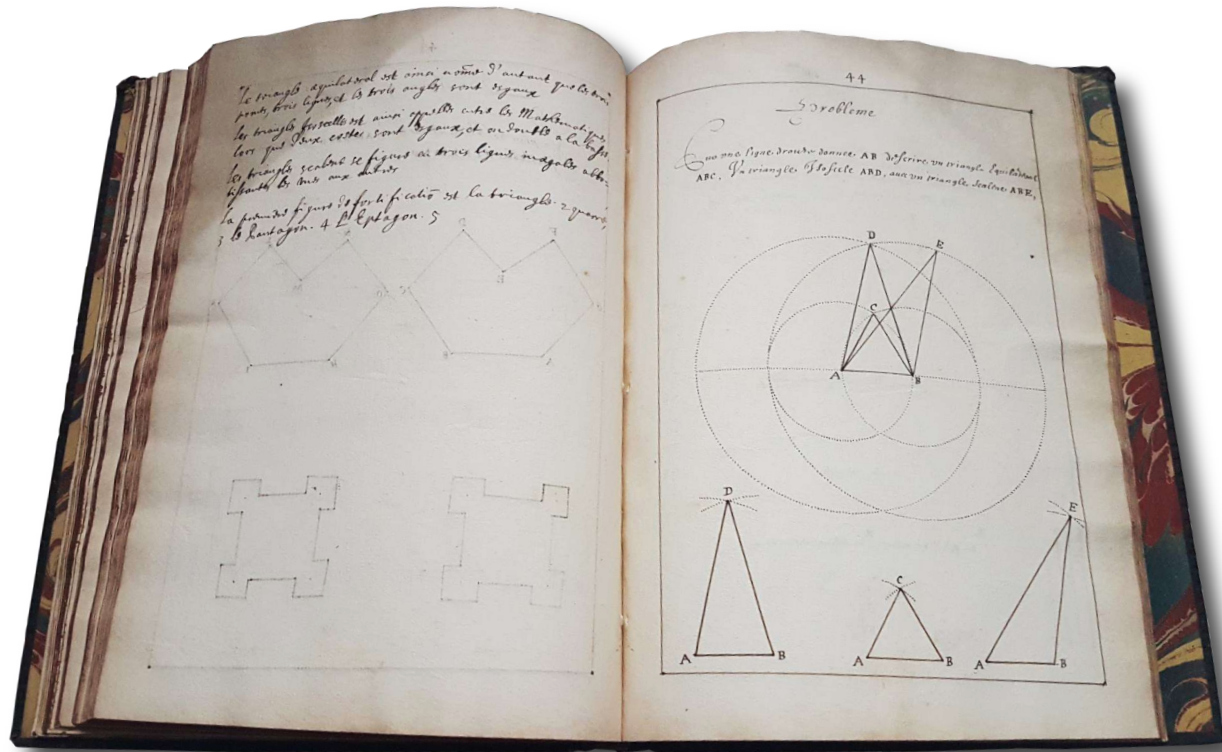 Le triangle æquilateral est ainsi nõme d'autant que les trois
trois lignes, et les trois angles sont esgaux
les triangle Isoscelle est ainsi entre les Mathematiques,
lors que deux costes sont esgaux, et on double a la
les triangles scalene se figure en trois lignes inegales
les uns aux autres
La figure de fortificatiõ est la triangle. 2
3 le Pantagon. 4 L'Eptagon. 5
44
Probleme
une ligne droicte donnée AB descrire un triangle Equilateral
ABC, Un triangle Isoscele ABD, avec un triangle scalene ABE,
D
E
C
A
B
D
A
B
C
A
B
E
A
B